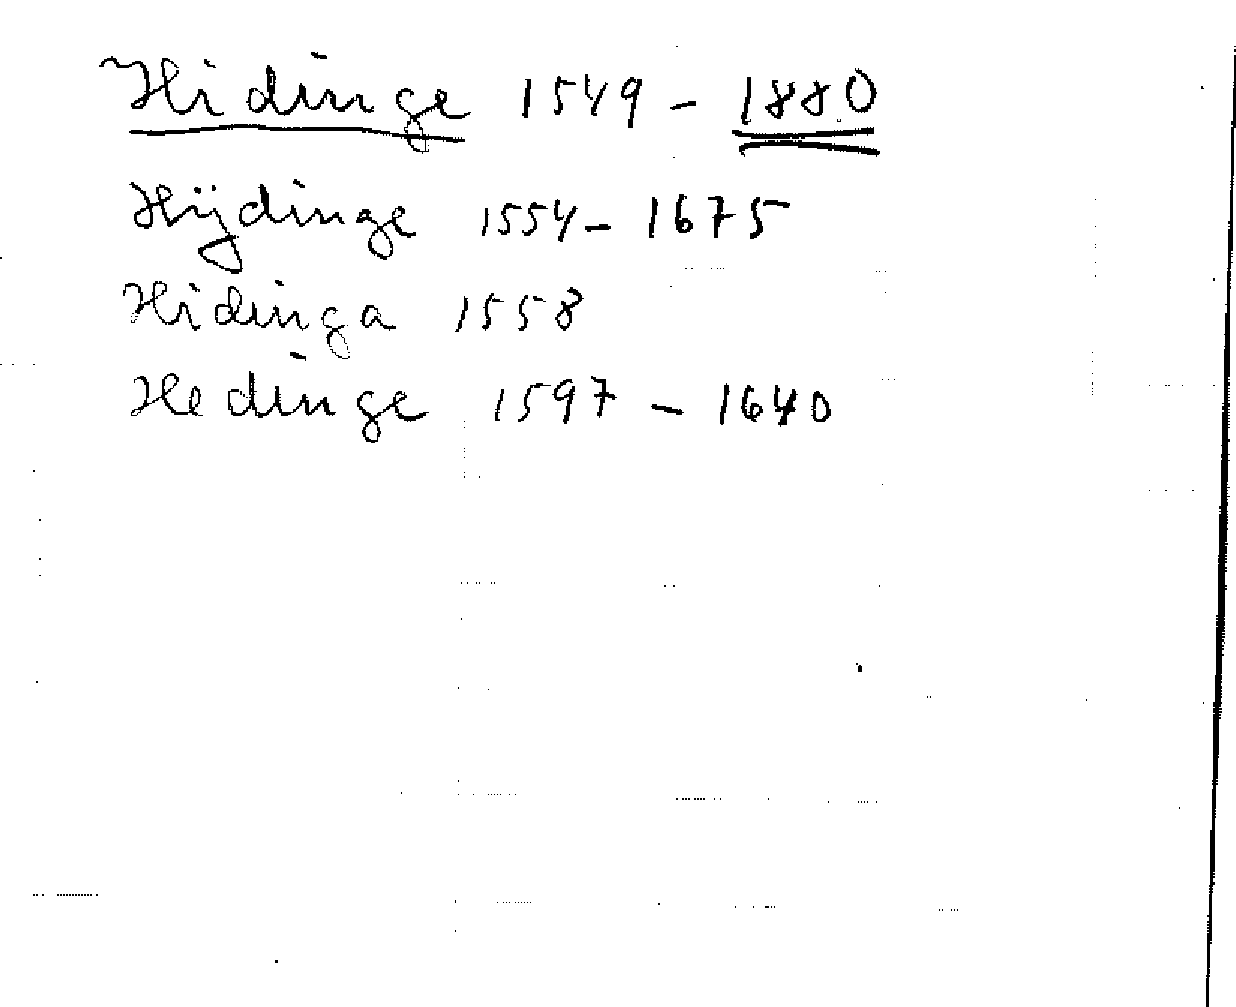 Hidinge 1549 - 1880
Hÿdinge 1554 - 1675
Hidinga 1558
Hedinge 1597 - 1640